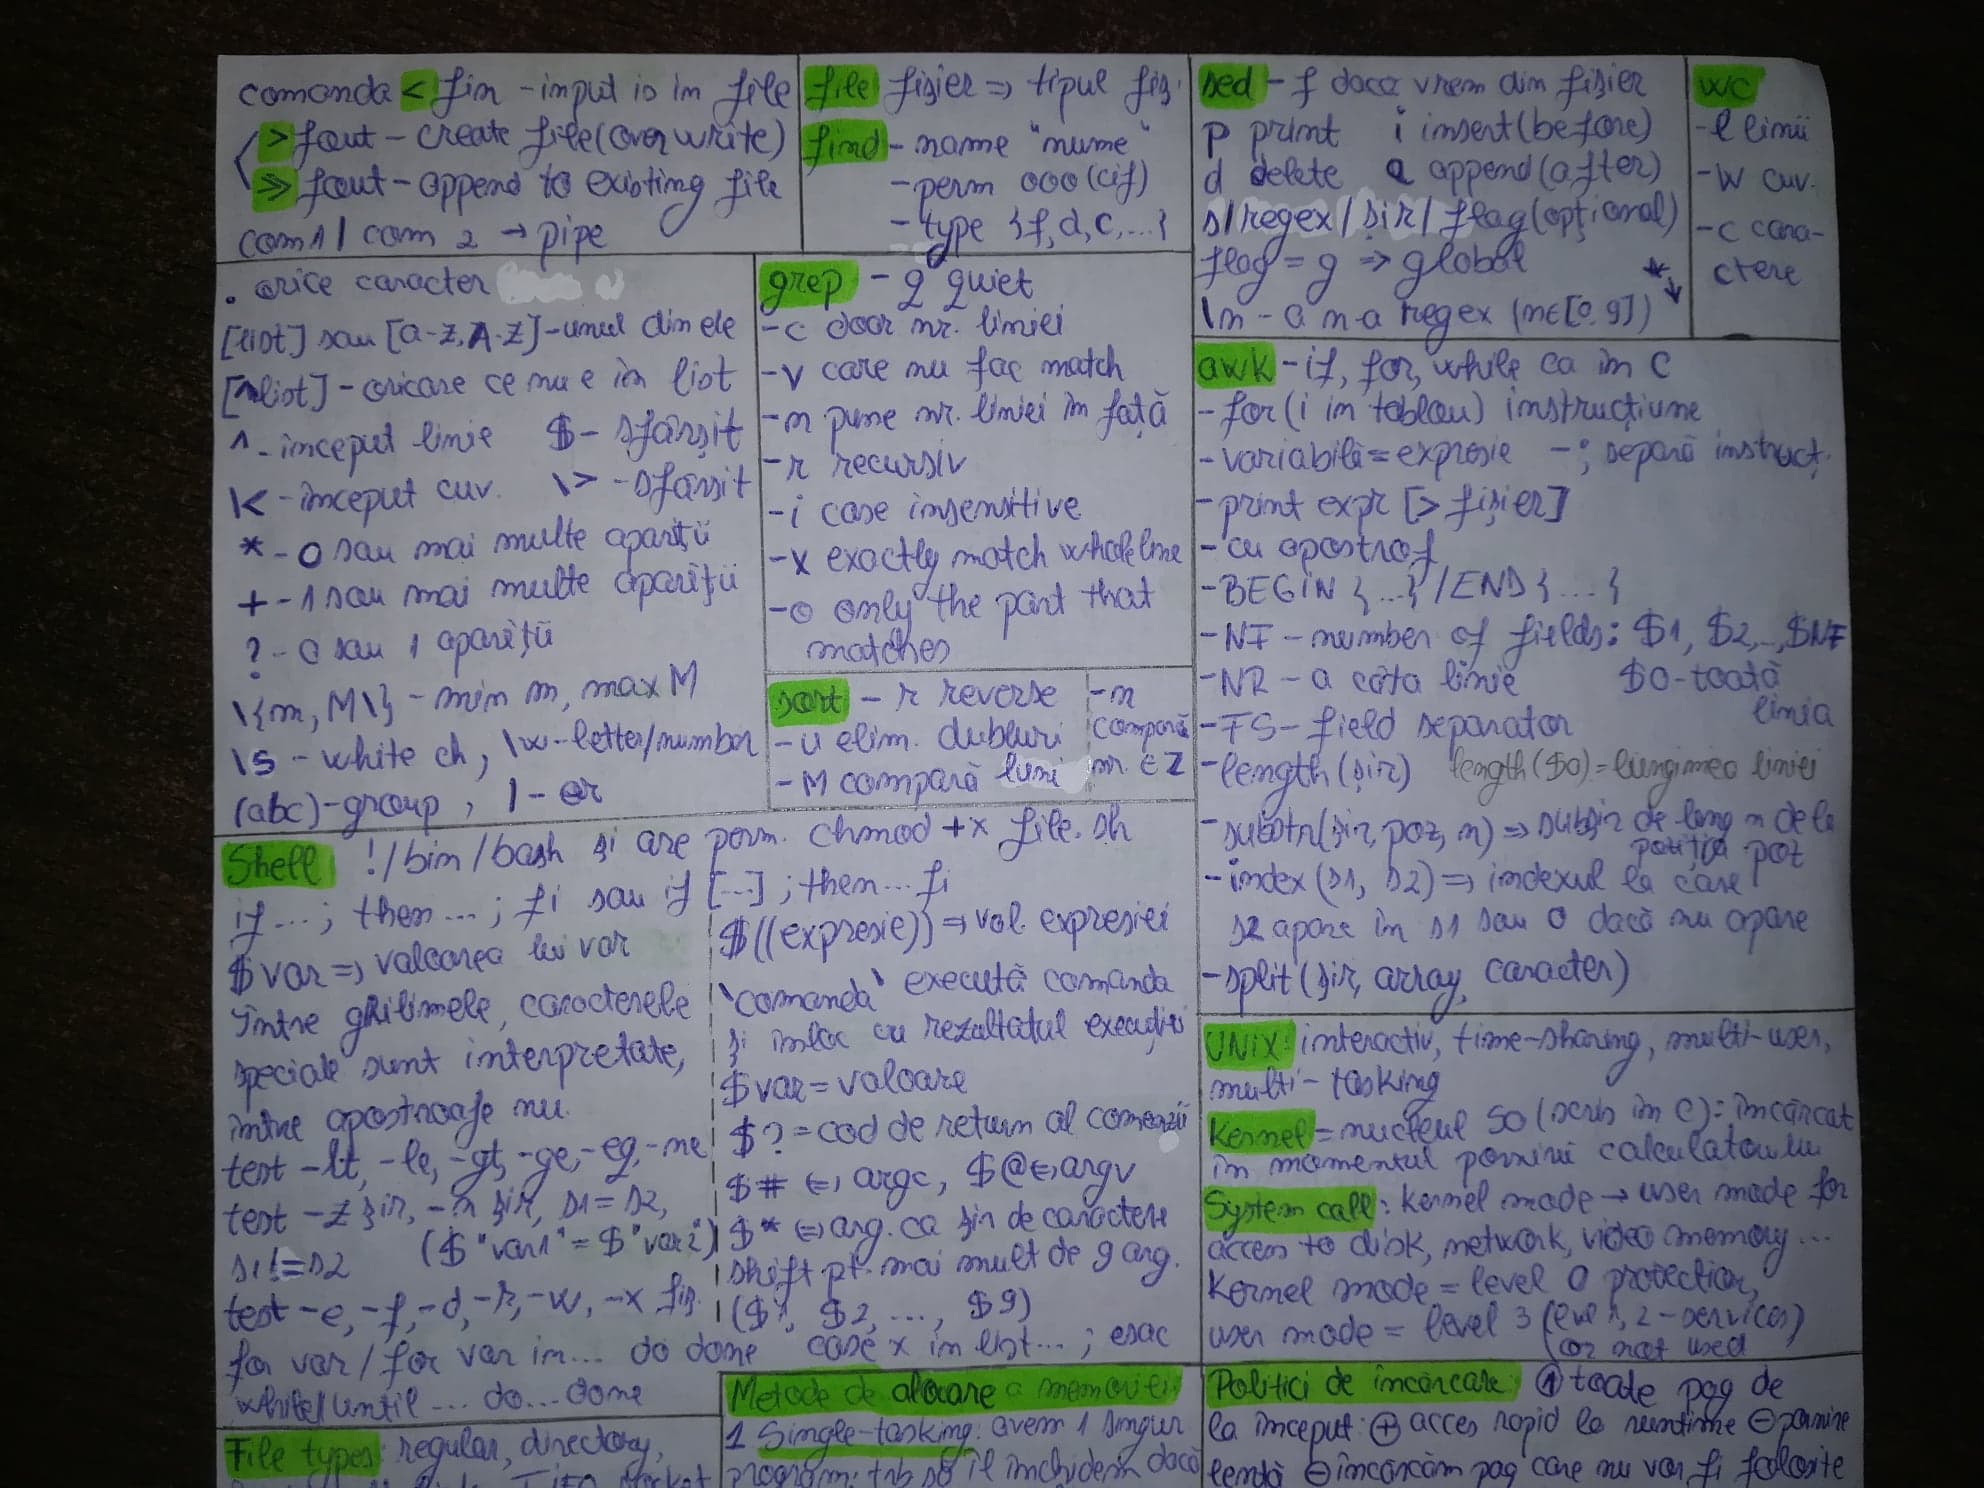 comanda < fin - input is in file
> fout - create file (overwrite)
>> fout - append to existing file
com1 | com 2 → pipe
file fișier => tipul fiș.
find - name "nume"
- perm 000 (cif)
- type {f, d, c, ...}
sed - f daca vrem din fișier
p print i insert (before)
d delete a append (after)
s/regex/șir/flag (opțional)
flag = g => global
\n - a n-a regex (n∈[0,9])
wc
-l linii
-w cuv.
-c cara-
ctere
. orice caracter
[list] sau [a-z, A-Z] - unul din ele
[^list] - oricare ce nu e în list
^ - început linie $ - sfârșit
\< - început cuv. \> - sfârșit
* - 0 sau mai multe apariții
+ - 1 sau mai multe apariții
? - 0 sau 1 apariții
\{m, M\} - min m, max M
\s - white ch, \w - letter/number
(abc) - group, | - or
grep - q quiet
-c doar nr. liniei
-v care nu fac match
-n pune nr. liniei în față
-r recursiv
-i case insensitive
-x exactly match whole line
-o only the part that
matches
sort - r reverse
- u elim. dubluri
- M compară luni
-n
compară
nr. ∈ Z
awk - if, for, while ca în C
- for (i in tablou) instrucțiune
- variabilă = expresie - ; separă instrucț.
- print expr [> fișier]
- cu apostrof
- BEGIN {...} / END {...}
- NF - number of fields: $1, $2, .., $NF
- NR - a câta linie $0 - toată
linia
- FS - field separator
- length (șir) length ($0) = lungimea liniei
- substr(șir, poz, n) => subșir de lung n de la
poziția poz
- index (s1, s2) => indexul la care
s2 apare în s1 sau 0 dacă nu apare
- split (șir, array, caracter)
Shell !/bin/bash și are perm. chmod +x file.sh
if ...; then ...; fi sau if [...]; then ... fi
$var => valoarea lui var
între ghilimele, caracterele
speciale sunt interpretate,
între apostroafe nu.
test -lt, -le, -gt, -ge, -eq, -ne
test -z șir, -n șir, s1 = s2,
s1 != s2 ($"var1" = $"var2")
test -e, -f, -d, -r, -w, -x fiș.
for var / for var in ... do done
while/until ... do ... done
$((expresie)) => val. expresiei
`comanda` execută comanda
și înloc cu rezultatul execuției
$var = valoare
$? = cod de return al comenzii
$# <=> argc, $@ <=> argv
$* <=> arg. ca șir de caractere
shift pt. mai mult de 9 arg.
($1, $2, ..., $9)
case x in list ... ; esac
UNIX: interactiv, time-sharing, multi-user,
multi-tasking
Kernel = nucleul SO (scris în C): încărcat
în momentul pornirii calculatorului
System call: kernel mode → user mode for
access to disk, network, video memory ...
Kernel mode = level 0 protection,
user mode = level 3 (lvl 1, 2 - services)
(or not used
File types: regular, directory,
Metode de alocare a memoriei
1 Single-tasking: avem 1 singur
program; trb să îl închidem dacă
Politici de încărcare: ① toate pag de
la început: ⊕ acces rapid la runtime ⊖ pornire
lentă ⊖ încărcăm pag care nu vor fi folosite